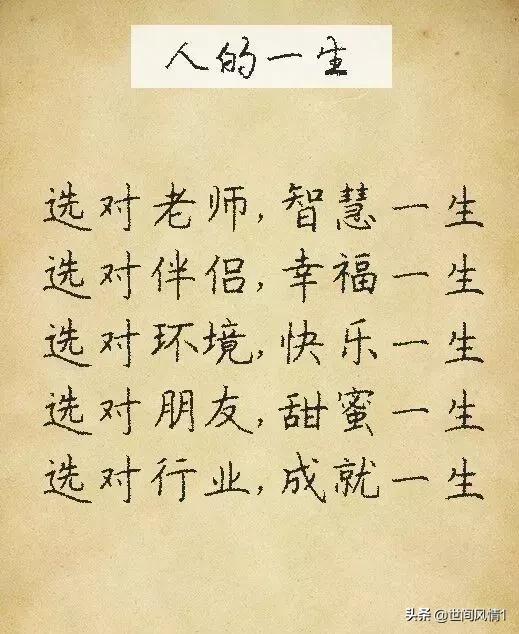 人的一生
选对老师,智慧一生
选对伴侣,幸福一生
选对环境,快乐一生
选对朋友,甜蜜一生
选对行业,成就一生
头条 @世间风情1